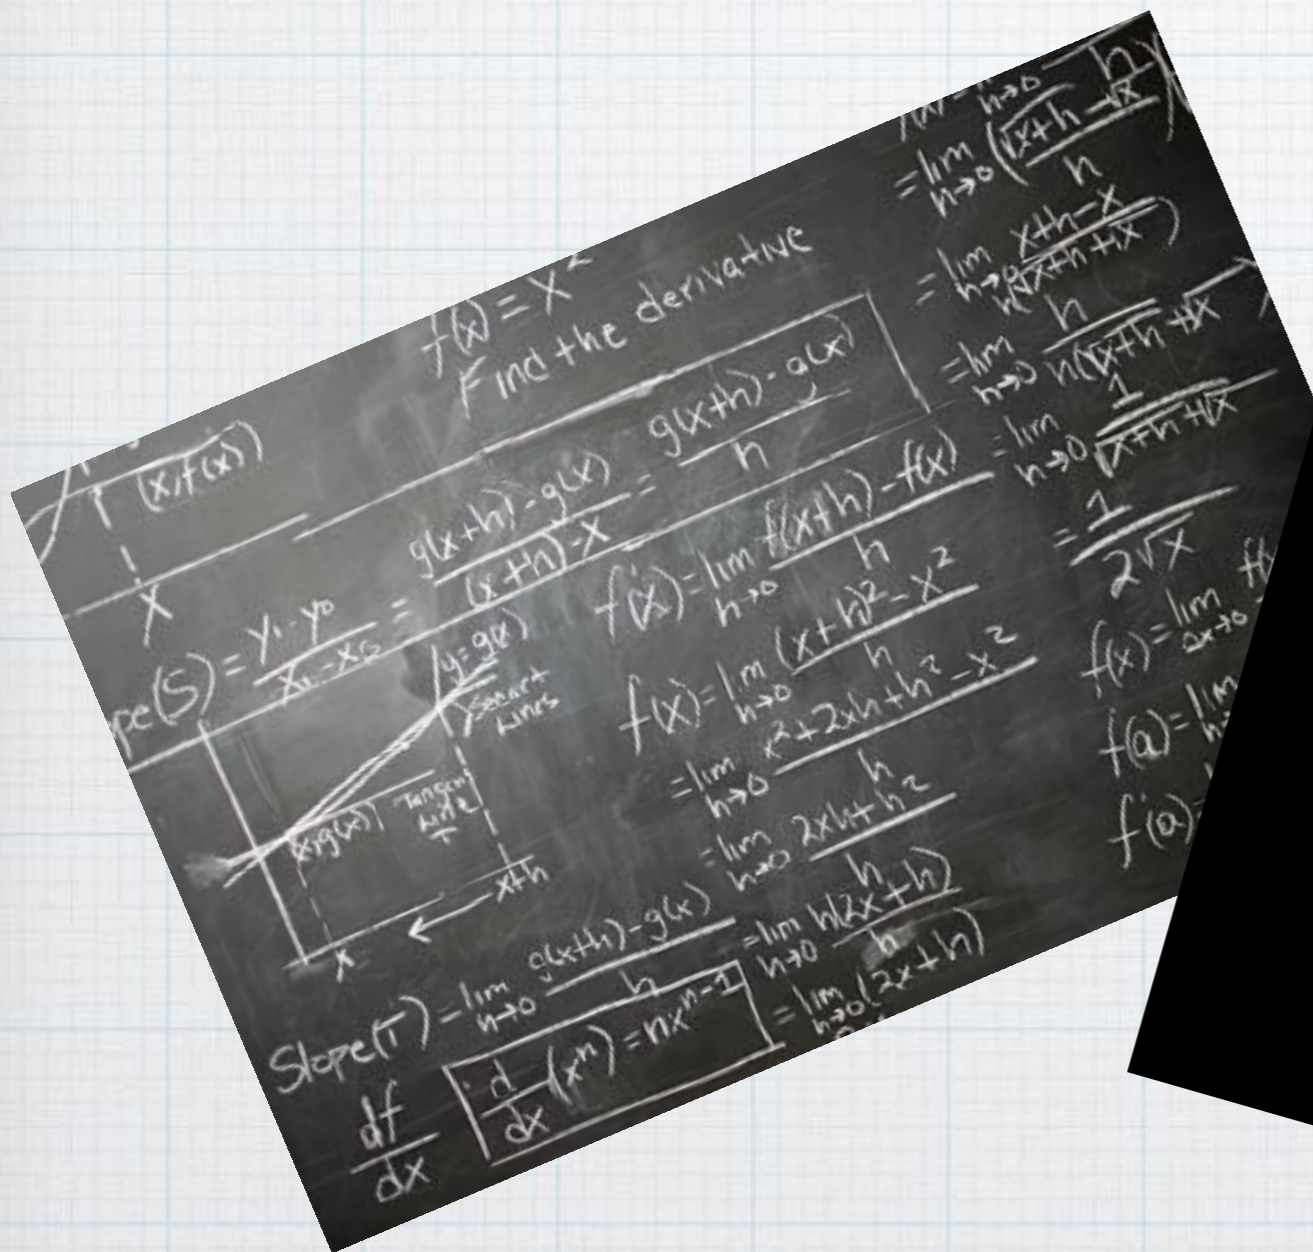 f(x) = x²
Find the derivative
(x, f(x))
x
g(x+h) - g(x) / (x+h) - x = g(x+h) - g(x) / h
pe(S) = y₁ - y₀ / x₁ - x₀ =
y = g(x)
Secant Lines
Tangent Line T
(x, g(x))
x+h
x
Slope(T) = lim h→0 g(x+h) - g(x) / h
df/dx
d/dx (xⁿ) = nxⁿ⁻¹
f'(x) = lim h→0 f(x+h) - f(x) / h
f'(x) = lim h→0 (x+h)² - x² / h
= lim h→0 x² + 2xh + h² - x² / h
= lim h→0 2xh + h² / h
= lim h→0 h(2x+h) / h
= lim h→0 (2x+h)
h→0 h
= lim h→0 (√x+h - √x / h
= lim h→0 x+h-x / h(√x+h + √x)
= lim h→0 h / h(√x+h + √x
= lim h→0 1 / √x+h + √x
= 1 / 2√x
f(x) = lim Δx→0 f(
f(a) = lim h
f'(a) =